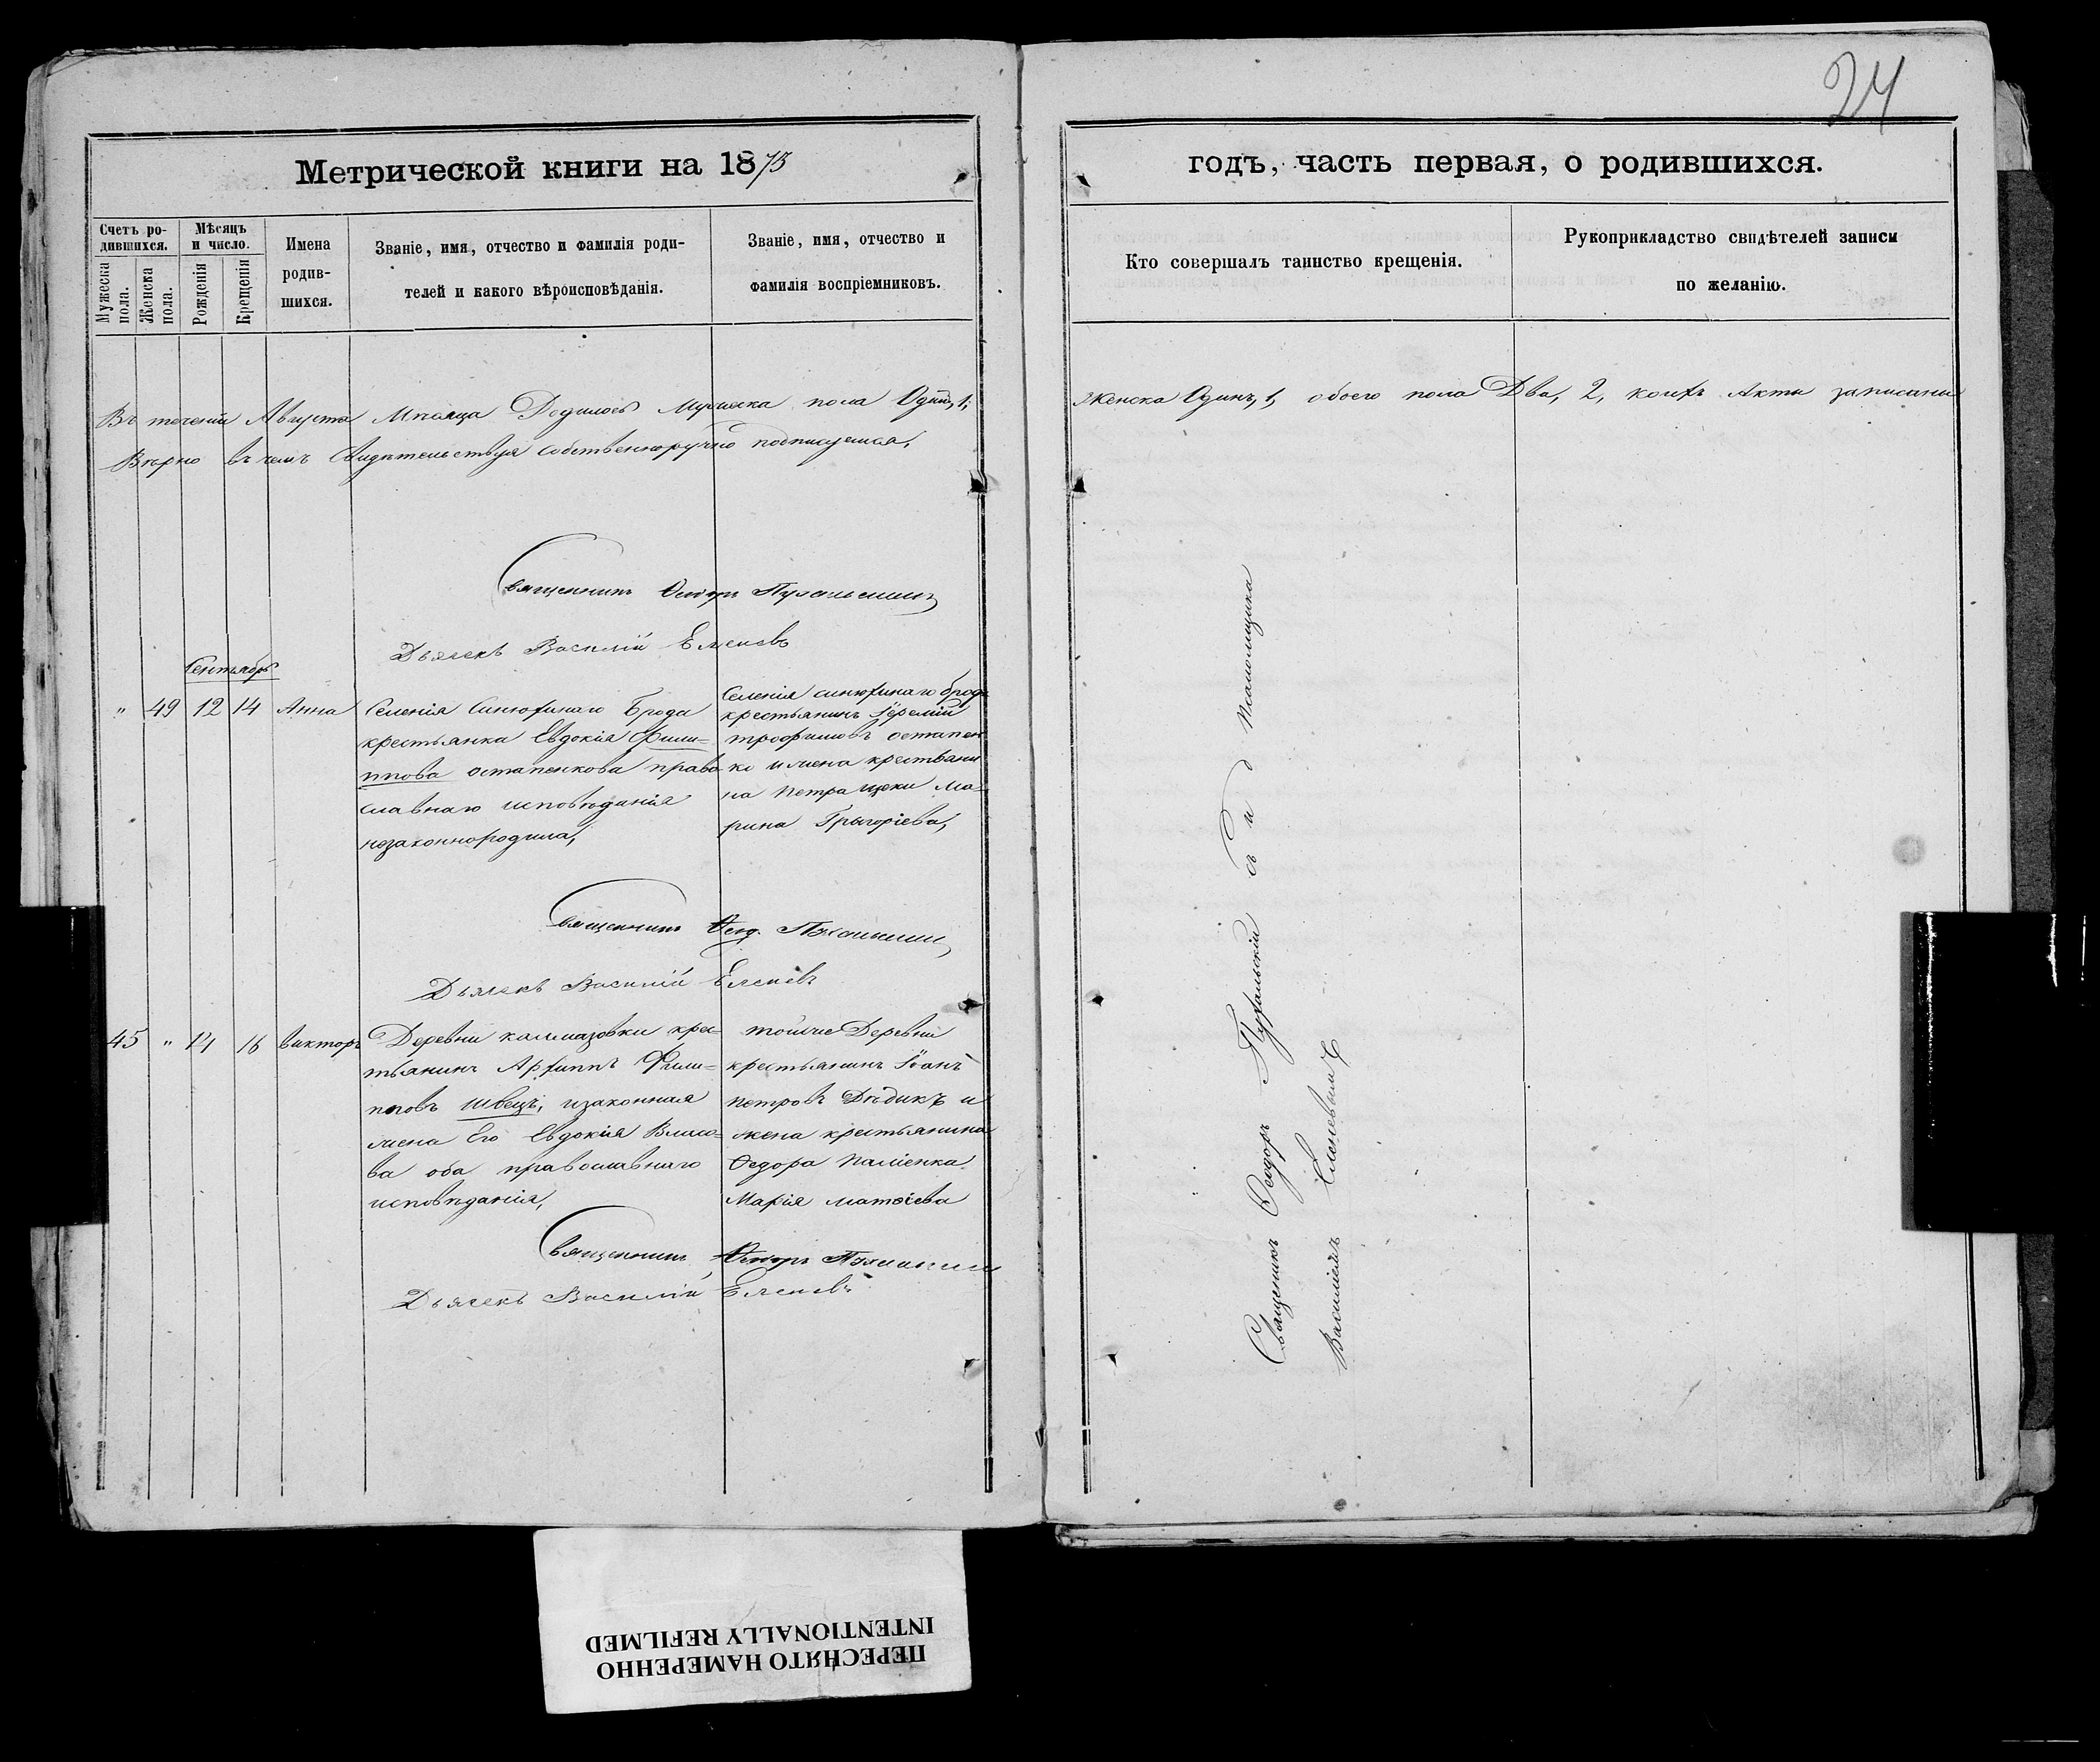 24
Метрической книги на 1873
годъ, часть первая, о родившихся.
Счетъ ро-
дившихся.
Мужеска
пола.
Женска
пола.
Мѣсяцъ
и число.
Рожденія
Крещенія
Имена
родив-
шихся.
Званіе, имя, отчество и фамилія роди-
телей и какого вѣроисповѣданія.
Званіе, имя, отчество и
фамилія воспріемниковъ.
Кто совершалъ таинство крещенія.
Рукоприкладство свидѣтелей записи
по желанію.
Въ теченіи Августа Мѣсяца Родилось Мужеска пола Одинъ, 1,
женска Одинъ, 1, обоего пола Два, 2, коихъ Акты записаны
Вѣрно въ чемъ Свидѣтельствуя собственноручно подписуемся,
Священникъ Феодоръ
Дьячекъ Василій
Сентябрь
" 49 12 14 Анна
Селенія Синюхинаго Брода
крестьянка Евдокія Фили=
ппова остапенкова право
славнаго исповѣданія
незаконнородила,
Селенія синюхинаго брода
крестьянинъ Іеремій
трофимовъ остапен
ко и жена крестьяни
на Петра Ма-
рина Григоріева,
Священникъ Феод.
Дьячекъ Василій
45 " 14 16 викторъ
Деревни калмазовки крес=
тьянинъ Архиппъ Фили=
пповъ швецъ, изаконная
жена Его Евдокія Власо=
ва оба православнаго
исповѣданія,
тойже Деревни
крестьянинъ Іоанъ
петровъ Дѣдикъ и
жена крестьянина
Федора паліенка
Марія матѳіева
Священникъ Феодоръ
Дьячекъ Василій
Священникъ Феодоръ Пухальскій съ И д Псаломщика
Василіемъ
ПЕРЕСНЯТО НАМЕРЕННО
INTENTIONALLY REFILMED